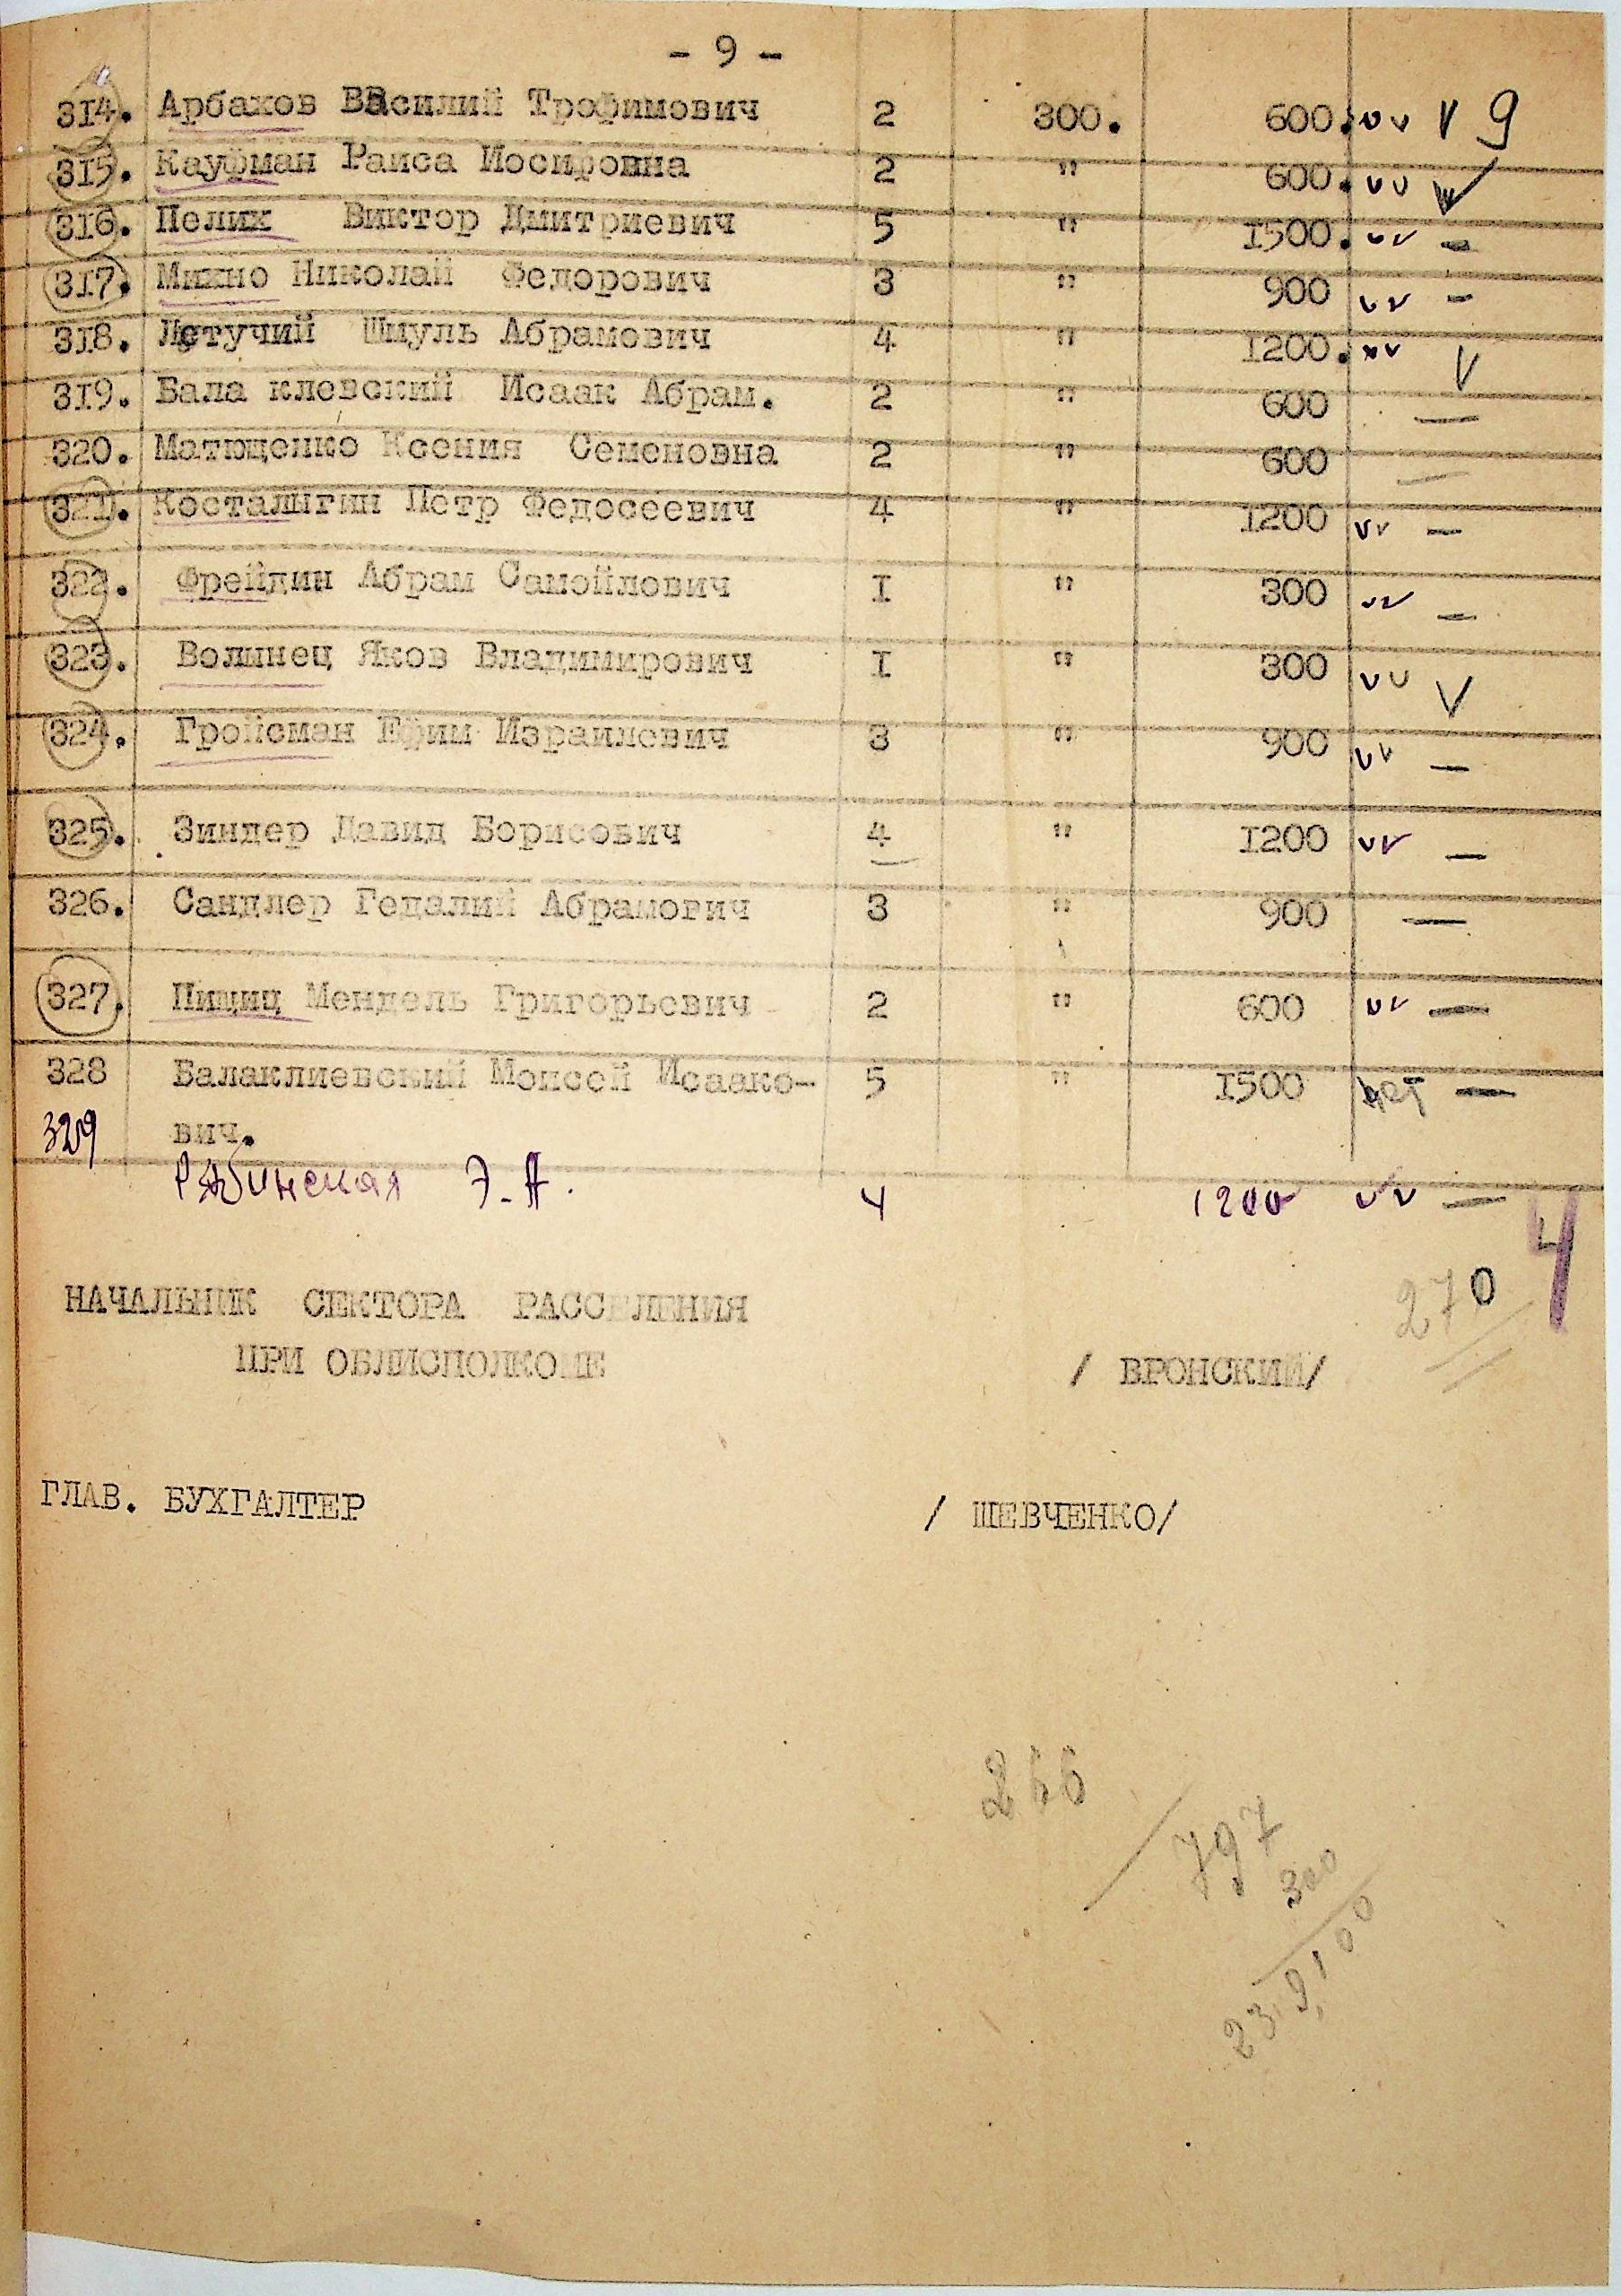 - 9 -
314. Арбахов ВВасилий Трофимович 2 300. 600. v v V 9
315. Кауфман Раиса Иосифовна 2 " 600. v v V
316. Пелих Виктор Дмитриевич 5 " I500. v v -
317. Михно Николай Федорович 3 " 900 v v -
318. Летучий Шмуль Абрамович 4 " I200. v v V
319. Бала клевский Исаак Абрам. 2 " 600 —
320. Матющенко Ксения Семеновна 2 " 600 —
321. Косталыгин Петр Федосеевич 4 " I200 v v —
322. Фрейдин Абрам Самойлович I " 300 v v —
323. Волынец Яков Владимирович I " 300 v v V
324. Гройсман Ефим Израилевич 3 " 900 v v —
325. Зиндер Давид Борисович 4 " I200 v v —
326. Сандлер Гедалий Абрамович 3 " 900 —
327. Пищиц Мендель Григорьевич 2 " 600 v v —
328 Балаклиевский Моисей Исаако- 5 " I500 нет —
вич.
329 Рябинская Э.А. 4 1200 v v —
4
270
НАЧАЛЬНИК СЕКТОРА РАССЕЛЕНИЯ
ПРИ ОБЛИСПОЛКОМЕ / ВРОНСКИЙ/
ГЛАВ. БУХГАЛТЕР / ШЕВЧЕНКО/
266
797
300
239100